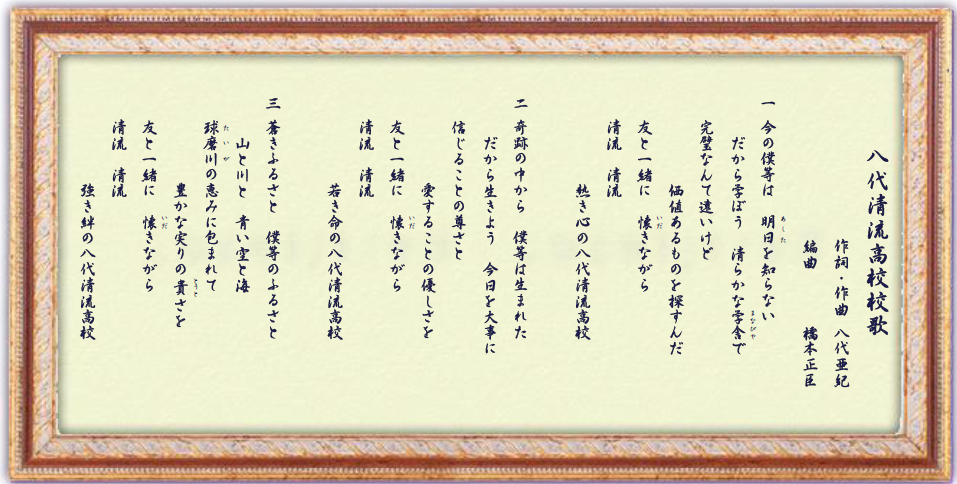 八代清流高校校歌
作詞・作曲 八代亜紀
編曲 橋本正臣
一 今の僕等は 明日を知らない
だから学ぼう 清らかな学舎で
完璧なんて遠いけど
価値あるものを探すんだ
友と一緒に 懐きながら
清流 清流
熱き心の八代清流高校
二 奇跡の中から 僕等は生まれた
だから生きよう 今日を大事に
信じることの尊さと
愛することの優しさを
友と一緒に 懐きながら
清流 清流
若き命の八代清流高校
三 蒼きふるさと 僕等のふるさと
山と川と 青い空と海
球磨川の恵みに包まれて
豊かな実りの貴さを
友と一緒に 懐きながら
清流 清流
強き絆の八代清流高校